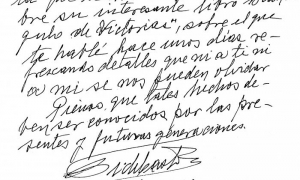 bre su interesante libro
gulo de Victorias", sobre el que
te hablé hace unos días re-
frescando detalles que ni a ti ni
a mi se nos pueden olvidar
Pienso, que tales hechos de-
ben ser conocidos por las pre-
sentes y futuras generaciones.